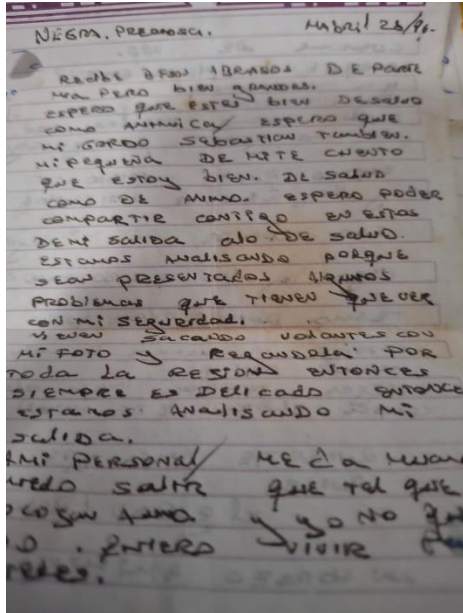 NEGRA. PRECIOSA. Mabril 23/96.
Recibe besos Abrasos DE PARTE
mia PERO bien grandes.
ESPERO que estes bien De salud
como Animica/ ESPERO que
mi gordo Sebastian Tambien.
mi pequeña DE MI TE cuento
que estoy bien. DE salud
como DE Animo. ESPERO poder
compartir contigo EN ESTOS
DE mi salida alo DE salud.
Estamos Analisando porque
sean presentados Algunos
problemas que tienen que ver
con mi seguridad.
vienen sacando volantes con
mi foto y Regandola POR
Toda la Resion entonces
siempre es Delicado entonce
estamos Analisando mi
salida.
AMI PERSONAL/ ME da
salir que tal que
y yo no
ENTERO vivir